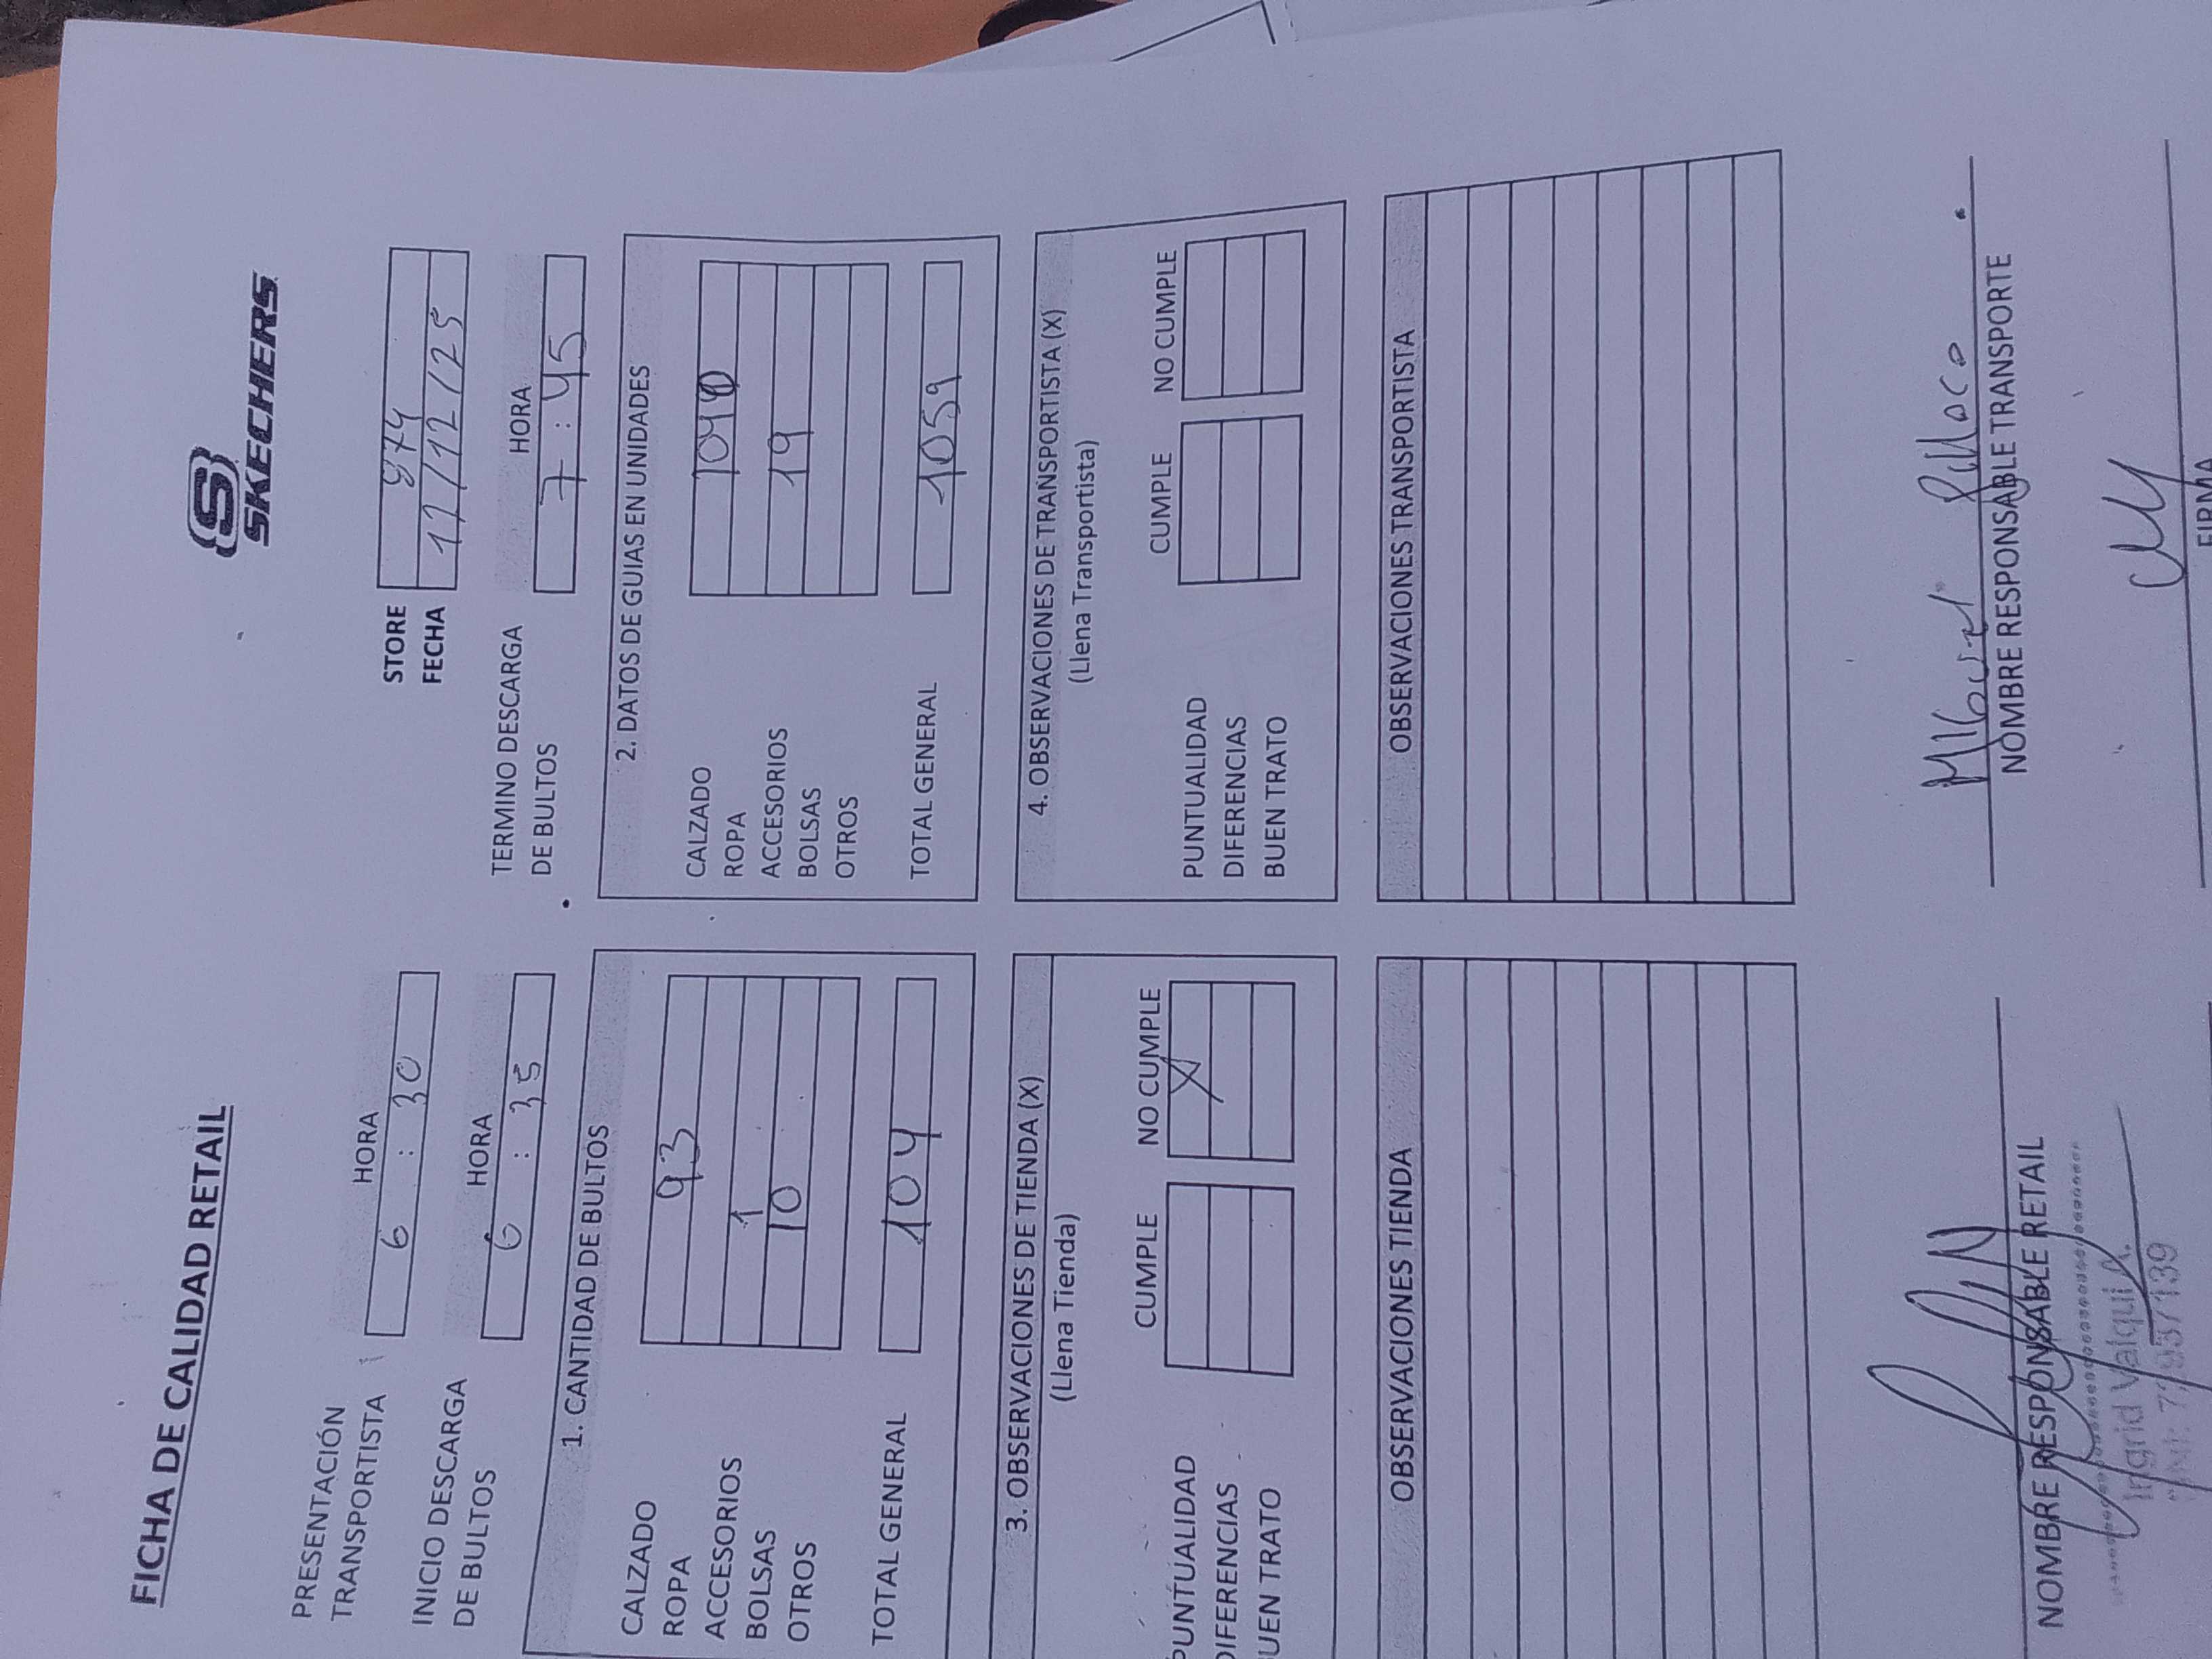 FICHA DE CALIDAD RETAIL
SKECHERS
STORE 974
FECHA 11/12/25
PRESENTACIÓN TRANSPORTISTA HORA 6 : 30
INICIO DESCARGA DE BULTOS HORA 6 : 35
TERMINO DESCARGA DE BULTOS HORA 7 : 45
1. CANTIDAD DE BULTOS
CALZADO 93
ROPA
ACCESORIOS 1
BOLSAS 10
OTROS
TOTAL GENERAL 104
2. DATOS DE GUIAS EN UNIDADES
CALZADO 1040
ROPA
ACCESORIOS 19
BOLSAS
OTROS
TOTAL GENERAL 1059
3. OBSERVACIONES DE TIENDA (X)
(Llena Tienda)
CUMPLE NO CUMPLE
PUNTUALIDAD X
DIFERENCIAS
BUEN TRATO
4. OBSERVACIONES DE TRANSPORTISTA (X)
(Llena Transportista)
CUMPLE NO CUMPLE
PUNTUALIDAD
DIFERENCIAS
BUEN TRATO
OBSERVACIONES TIENDA
OBSERVACIONES TRANSPORTISTA
NOMBRE RESPONSABLE RETAIL
Ingrid Valqui
Miguel
NOMBRE RESPONSABLE TRANSPORTE
FIRMA